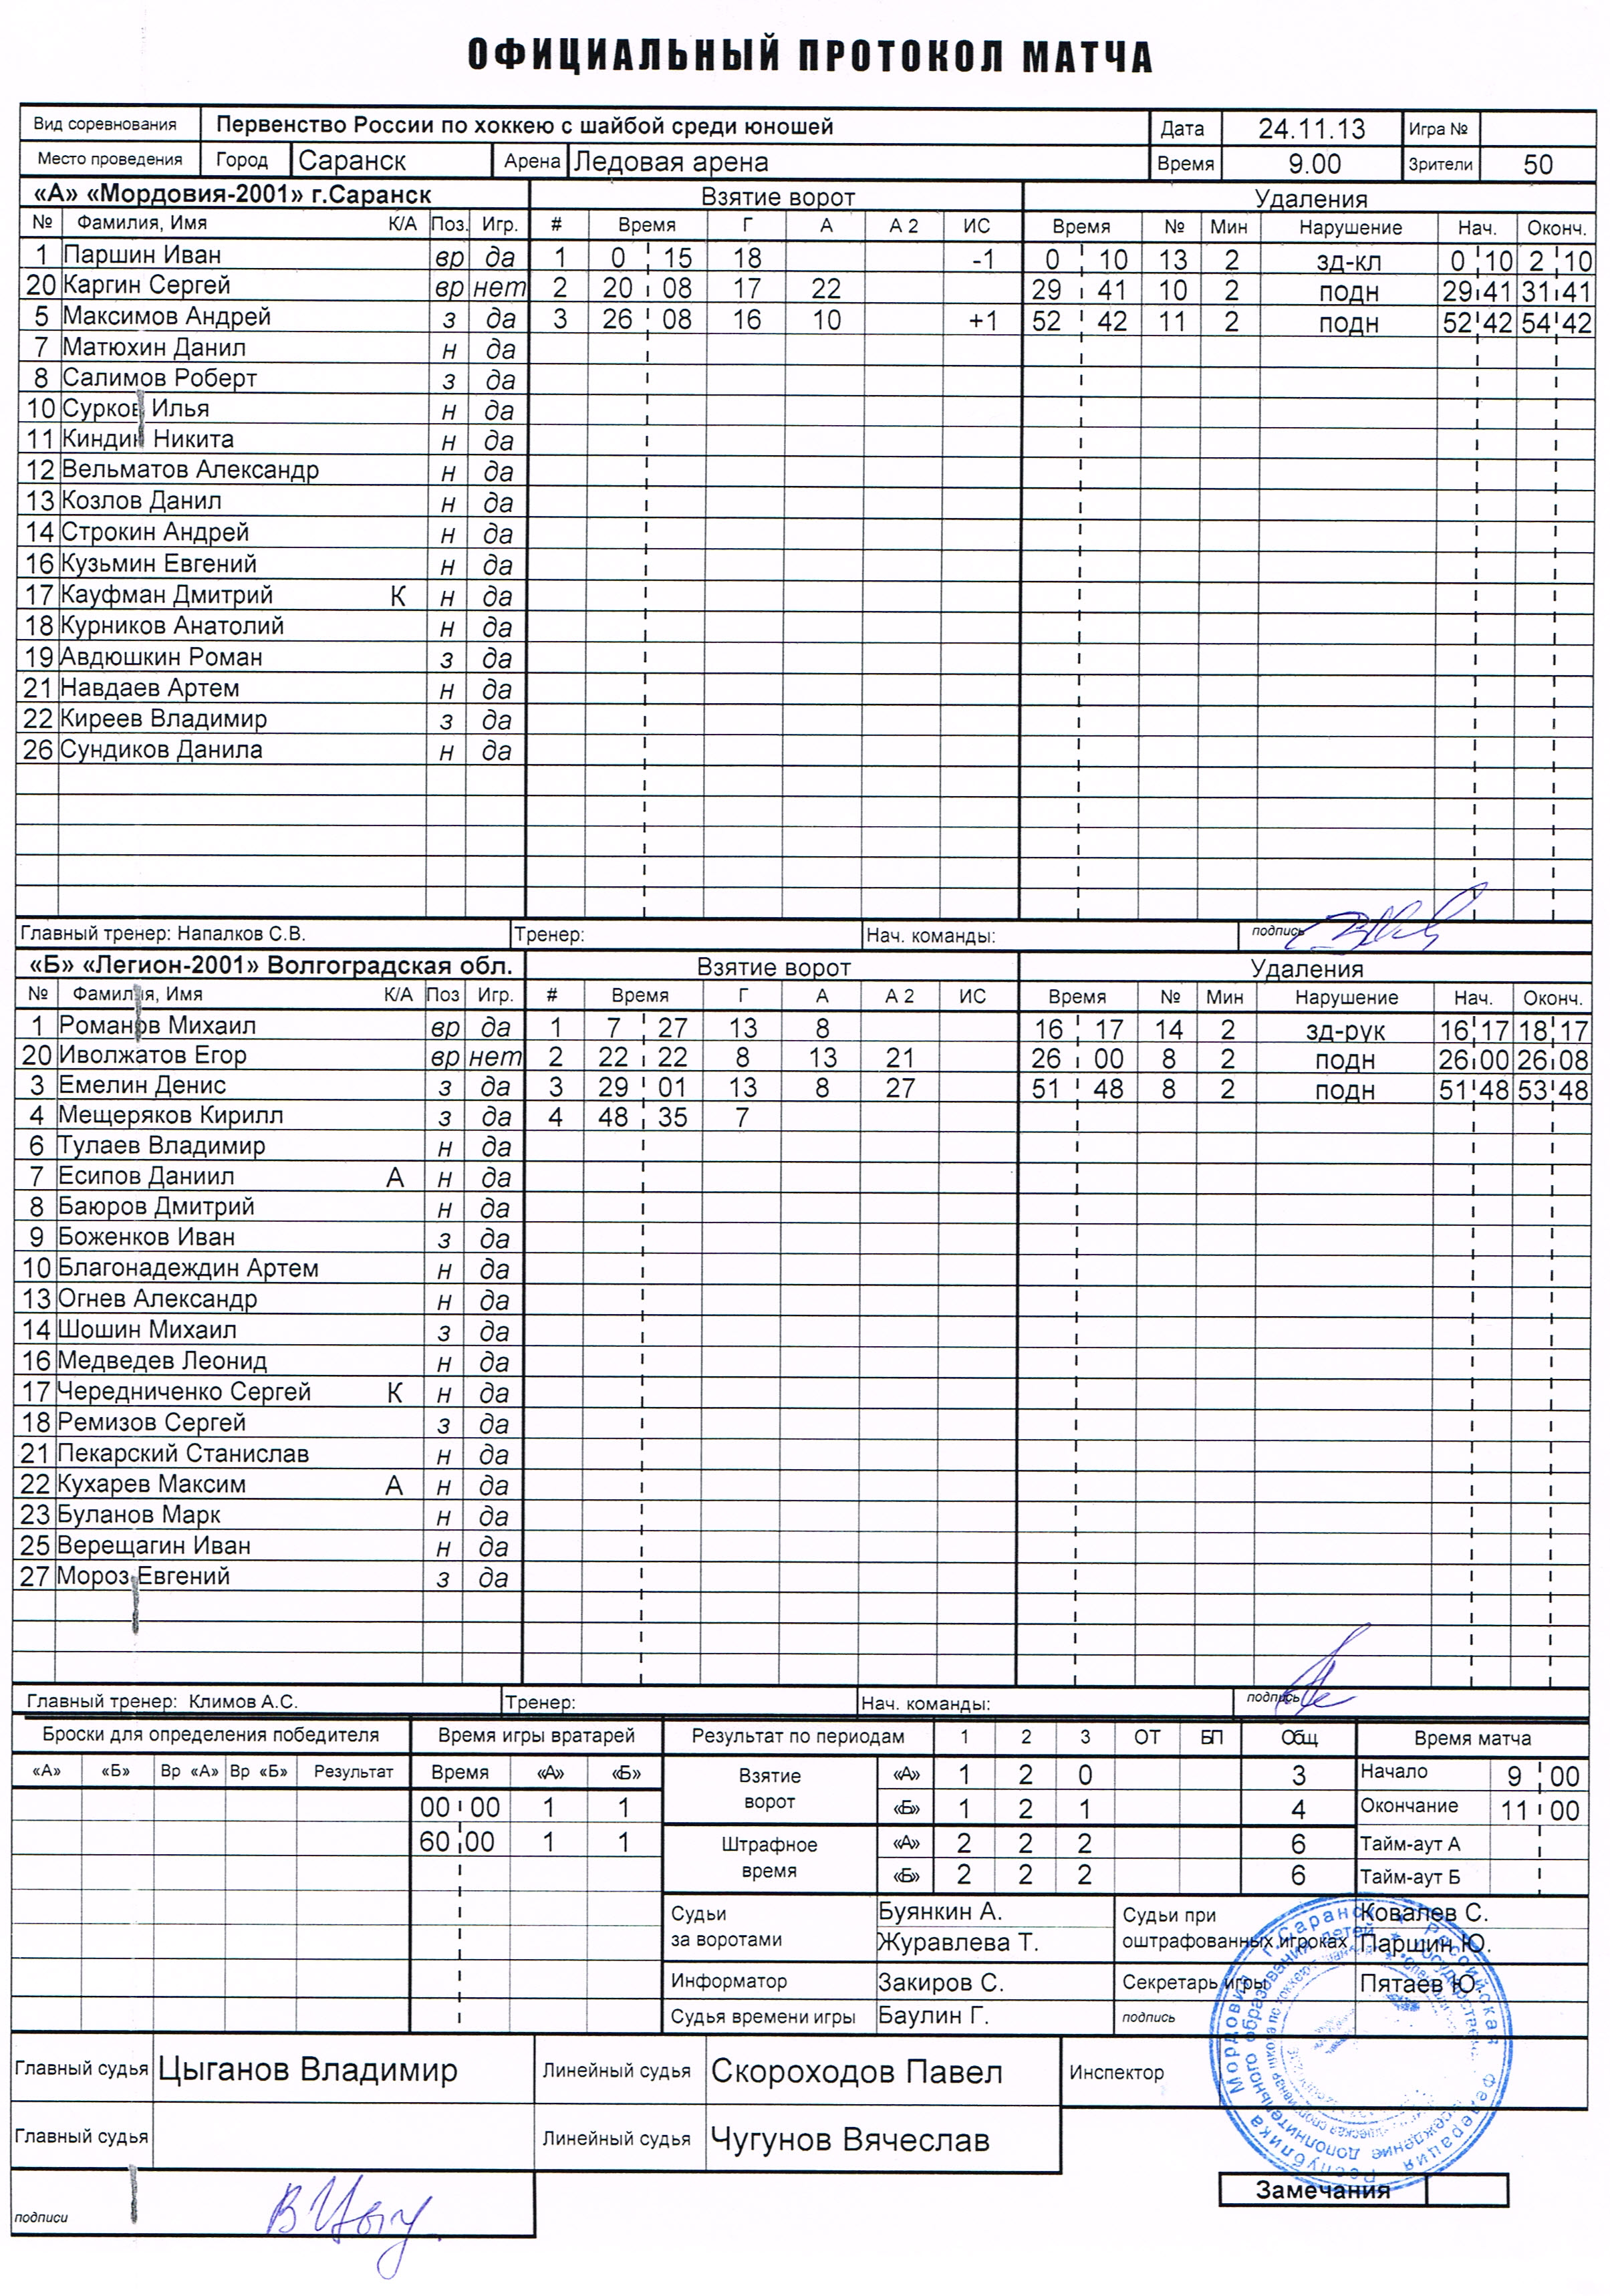 ОФИЦИАЛЬНЫЙ ПРОТОКОЛ МАТЧА
Вид соревнования Первенство России по хоккею с шайбой среди юношей Дата 24.11.13 Игра №
Место проведения Город Саранск Арена Ледовая арена Время 9.00 Зрители 50
«А» «Мордовия-2001» г.Саранск Взятие ворот Удаления
№ Фамилия, Имя К/А Поз. Игр. # Время Г А А 2 ИС Время № Мин Нарушение Нач. Оконч.
1 Паршин Иван вр да 1 0 15 18 -1 0 10 13 2 зд-кл 0 10 2 10
20 Каргин Сергей вр нет 2 20 08 17 22 29 41 10 2 подн 29 41 31 41
5 Максимов Андрей з да 3 26 08 16 10 +1 52 42 11 2 подн 52 42 54 42
7 Матюхин Данил н да
8 Салимов Роберт з да
10 Сурков Илья н да
11 Киндин Никита н да
12 Вельматов Александр н да
13 Козлов Данил н да
14 Строкин Андрей н да
16 Кузьмин Евгений н да
17 Кауфман Дмитрий К н да
18 Курников Анатолий н да
19 Авдюшкин Роман з да
21 Навдаев Артем н да
22 Киреев Владимир з да
26 Сундиков Данила н да
Главный тренер: Напалков С.В. Тренер: Нач. команды: подпись
«Б» «Легион-2001» Волгоградская обл. Взятие ворот Удаления
№ Фамилия, Имя К/А Поз Игр. # Время Г А А 2 ИС Время № Мин Нарушение Нач. Оконч.
1 Романов Михаил вр да 1 7 27 13 8 16 17 14 2 зд-рук 16 17 18 17
20 Иволжатов Егор вр нет 2 22 22 8 13 21 26 00 8 2 подн 26 00 26 08
3 Емелин Денис з да 3 29 01 13 8 27 51 48 8 2 подн 51 48 53 48
4 Мещеряков Кирилл з да 4 48 35 7
6 Тулаев Владимир н да
7 Есипов Даниил А н да
8 Баюров Дмитрий н да
9 Боженков Иван з да
10 Благонадеждин Артем н да
13 Огнев Александр н да
14 Шошин Михаил з да
16 Медведев Леонид н да
17 Чередниченко Сергей К н да
18 Ремизов Сергей з да
21 Пекарский Станислав н да
22 Кухарев Максим А н да
23 Буланов Марк н да
25 Верещагин Иван н да
27 Мороз Евгений з да
Главный тренер: Климов А.С. Тренер: Нач. команды: подпись
Броски для определения победителя Время игры вратарей Результат по периодам 1 2 3 ОТ БП Общ Время матча
«А» «Б» Вр «А» Вр «Б» Результат Время «А» «Б» Взятие ворот «А» 1 2 0 3 Начало 9 00
00 00 1 1 «Б» 1 2 1 4 Окончание 11 00
60 00 1 1 Штрафное время «А» 2 2 2 6 Тайм-аут А
«Б» 2 2 2 6 Тайм-аут Б
Судьи за воротами Буянкин А. Судьи при оштрафованных игроках Ковалев С.
Журавлева Т. Паршин Ю.
Информатор Закиров С. Секретарь игры Пятаев Ю.
Судья времени игры Баулин Г. подпись
Главный судья Цыганов Владимир Линейный судья Скороходов Павел Инспектор
Главный судья Линейный судья Чугунов Вячеслав
Республика Мордовия г.Саранск Российская Федерация
Замечания
подписи